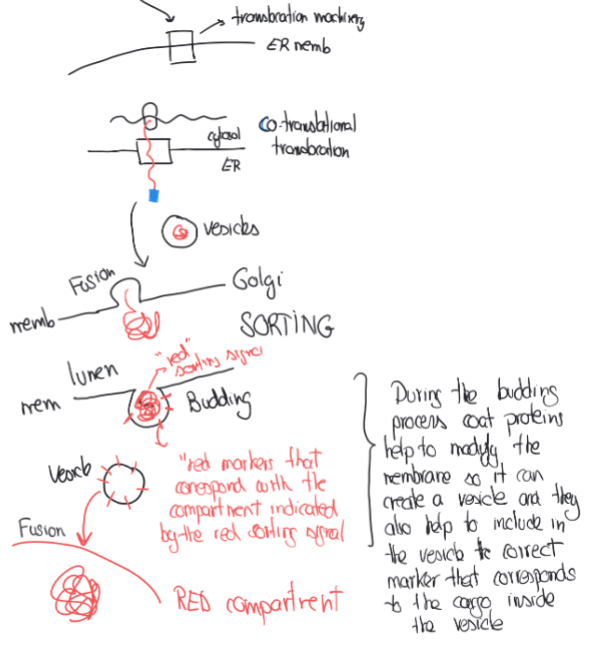 translocation machinery
ER memb
cytosol
ER
Co-translational
translocation
vesicles
Fusion
Golgi
memb
SORTING
lumen
"red"
sorting signal
mem
Budding
Vesicle
"red markers that
correspond with the
compartment indicated
by the red sorting signal
Fusion
RED compartment
During the budding
process coat proteins
help to modify the
membrane so it can
create a vesicle and they
also help to include in
the vesicle te correct
marker that corresponds
to the cargo inside
the vesicle